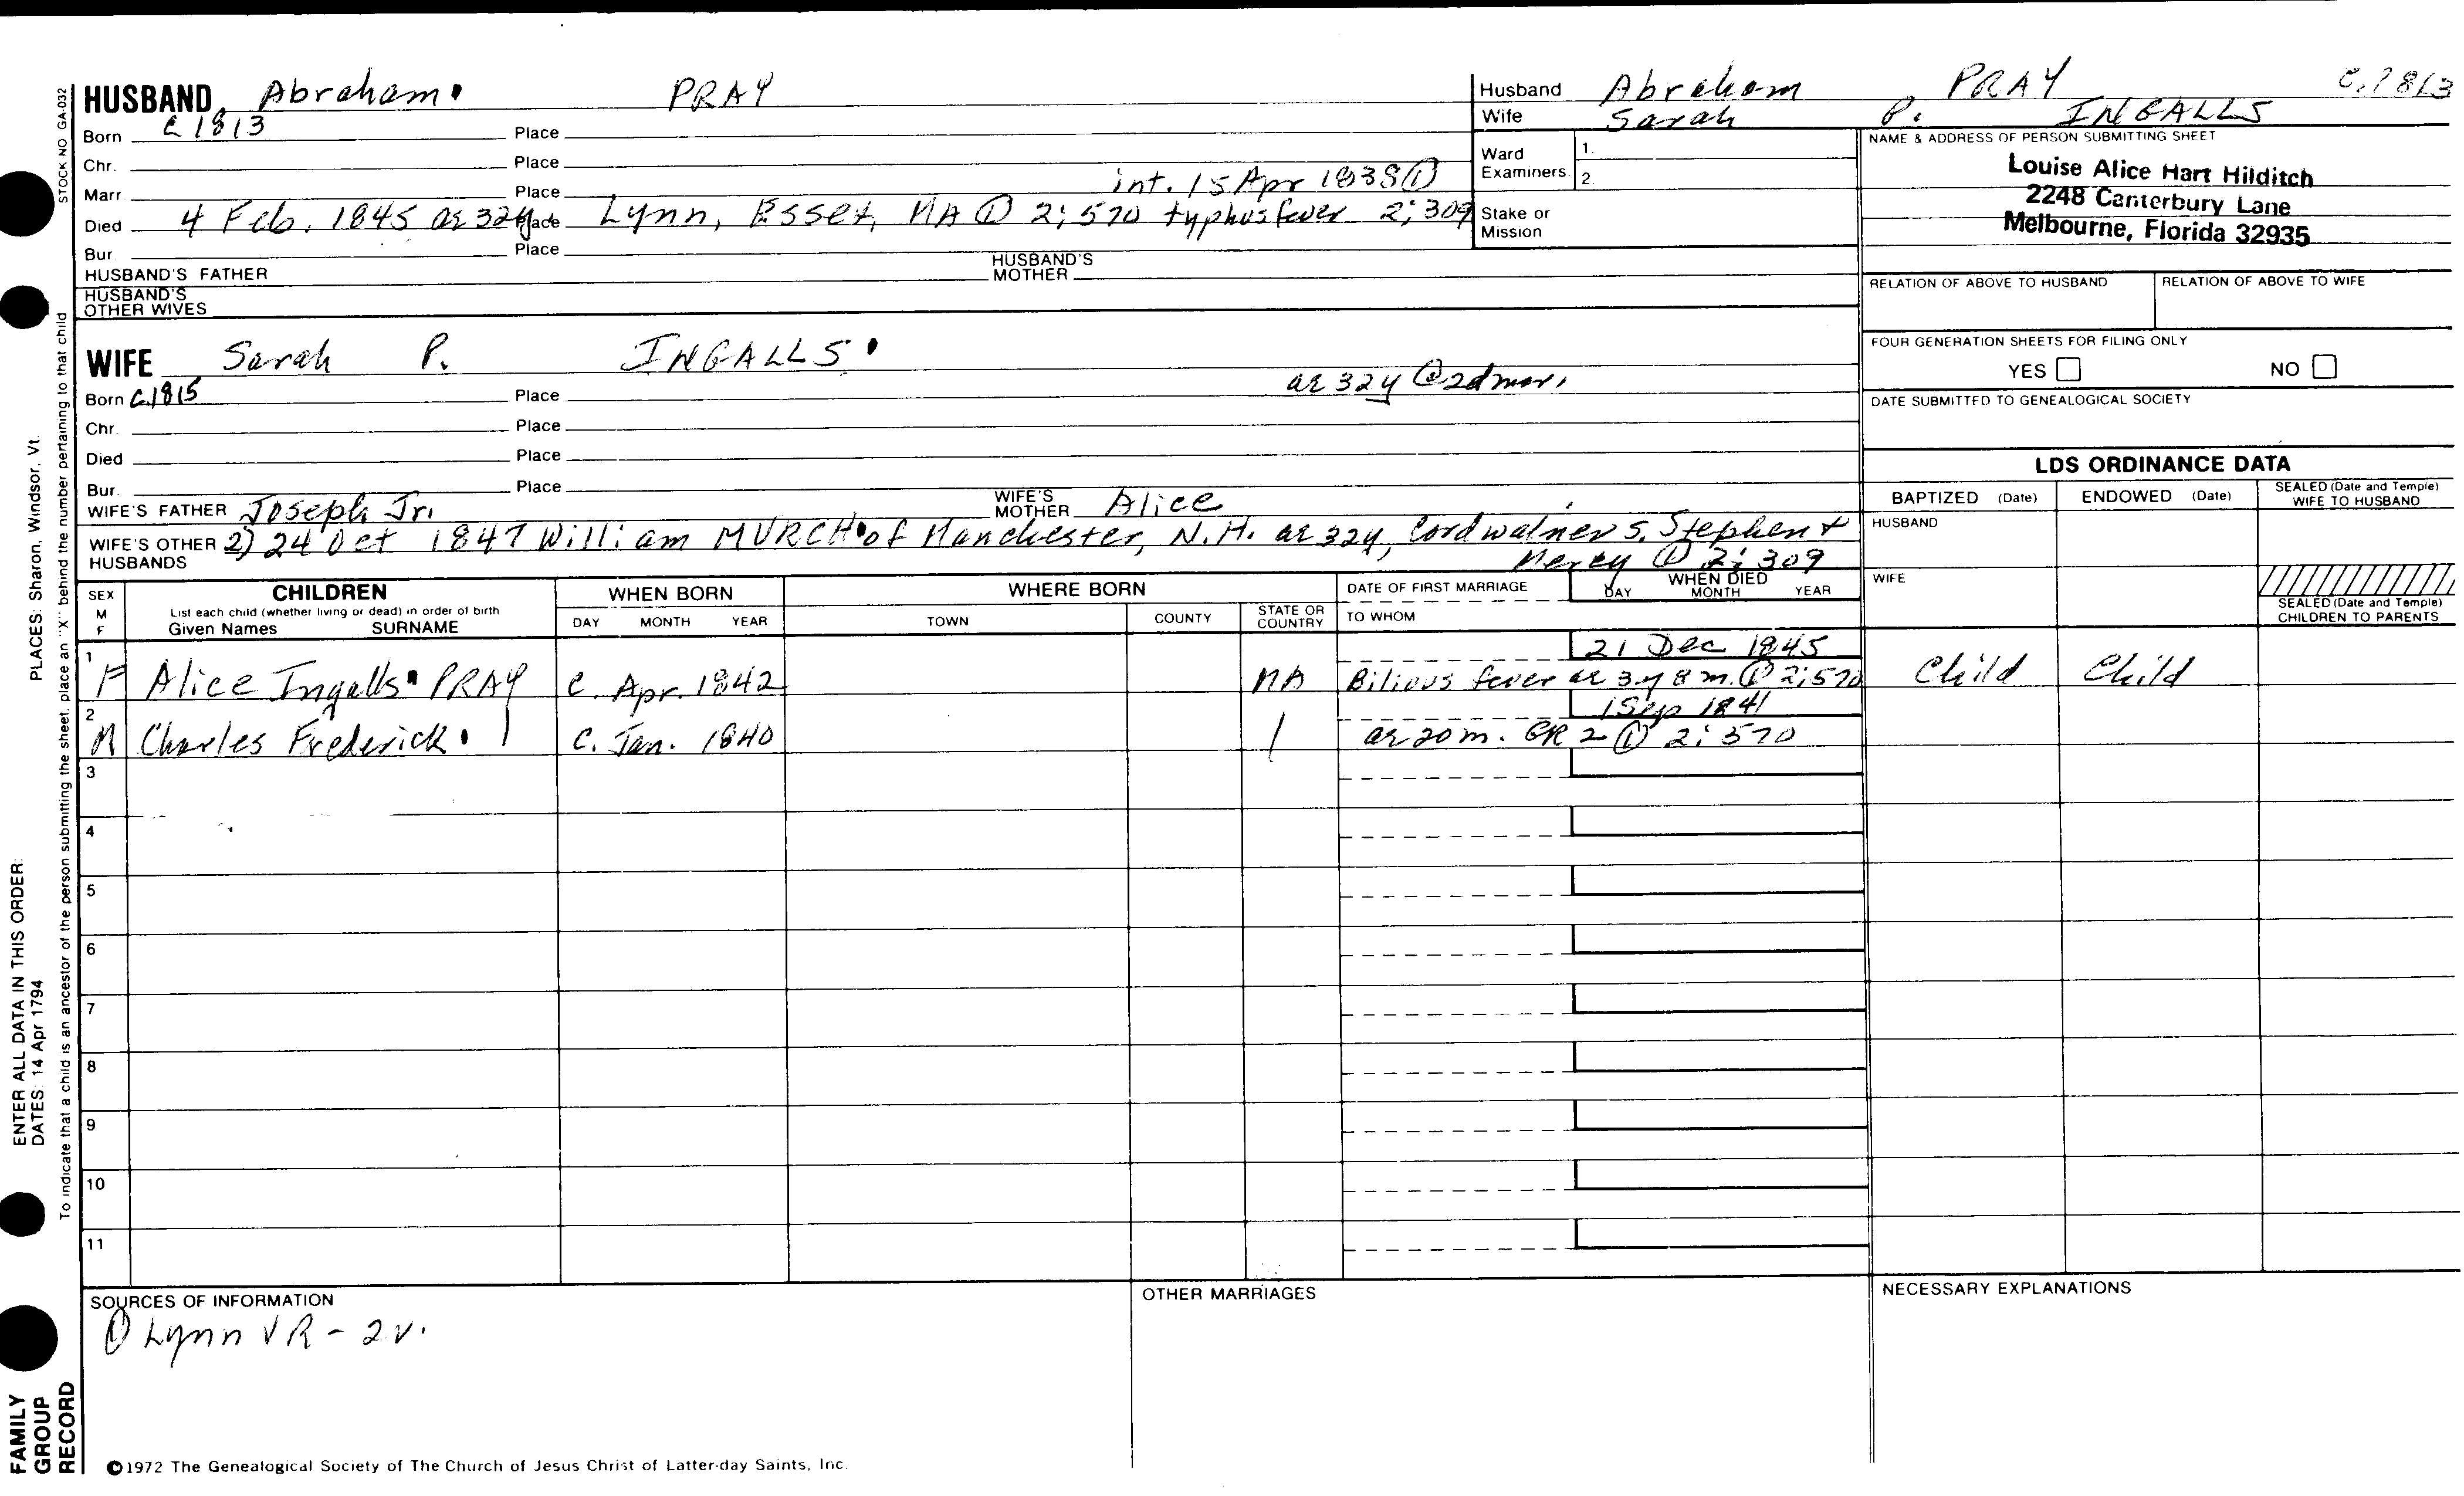 HUSBAND Abraham PRAY
Born C 1813 Place
Chr. Place
Marr. Place int. 15 Apr 1838 ①
Died 4 Feb. 1845 ae 32y Place Lynn, Essex, MA ① 2:570 typhus fever 2:309
Bur. Place
HUSBAND'S FATHER HUSBAND'S MOTHER
HUSBAND'S OTHER WIVES
Husband Abraham PRAY C.1813
Wife Sarah P. INGALLS
Ward Examiners 1.
2.
Stake or Mission
NAME & ADDRESS OF PERSON SUBMITTING SHEET
Louise Alice Hart Hilditch
2248 Canterbury Lane
Melbourne, Florida 32935
RELATION OF ABOVE TO HUSBAND RELATION OF ABOVE TO WIFE
FOUR GENERATION SHEETS FOR FILING ONLY
YES NO
DATE SUBMITTED TO GENEALOGICAL SOCIETY
WIFE Sarah P. INGALLS
ae 32y @ 2d mar.
Born C.1815 Place
Chr. Place
Died Place
Bur. Place
WIFE'S FATHER Joseph Jr. WIFE'S MOTHER Alice
WIFE'S OTHER HUSBANDS 2) 24 Oct 1847 William MURCH of Manchester, N.H. ae 32y, Cordwainer s. Stephen &
Mercy ① 2:309
LDS ORDINANCE DATA
BAPTIZED (Date) ENDOWED (Date) SEALED (Date and Temple) WIFE TO HUSBAND
HUSBAND
WIFE
SEALED (Date and Temple) CHILDREN TO PARENTS
SEX M F CHILDREN List each child (whether living or dead) in order of birth Given Names SURNAME
WHEN BORN DAY MONTH YEAR
WHERE BORN TOWN COUNTY STATE OR COUNTRY
DATE OF FIRST MARRIAGE TO WHOM
WHEN DIED DAY MONTH YEAR
21 Dec 1845
1 F Alice Ingalls PRAY C. Apr. 1842 MA Bilious fever ae 3y 8m. ① 2:570 Child Child
1 Sep 1841
2 M Charles Frederick C. Jan. 1840 ae 20m. GR 2 ① 2:570
3
4
5
6
7
8
9
10
11
SOURCES OF INFORMATION
① Lynn VR - 2v.
OTHER MARRIAGES
NECESSARY EXPLANATIONS
©1972 The Genealogical Society of The Church of Jesus Christ of Latter-day Saints, Inc.
STOCK NO GA-032
To indicate that a child is an ancestor of the person submitting the sheet, place an "X" behind the number pertaining to that child
ENTER ALL DATA IN THIS ORDER:
DATES: 14 Apr 1794 PLACES: Sharon, Windsor, Vt.
FAMILY
GROUP
RECORD